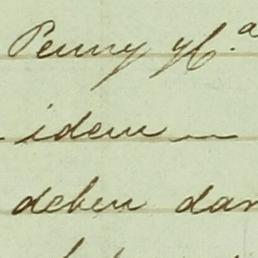 Penny y C.ª
idem
deben dar